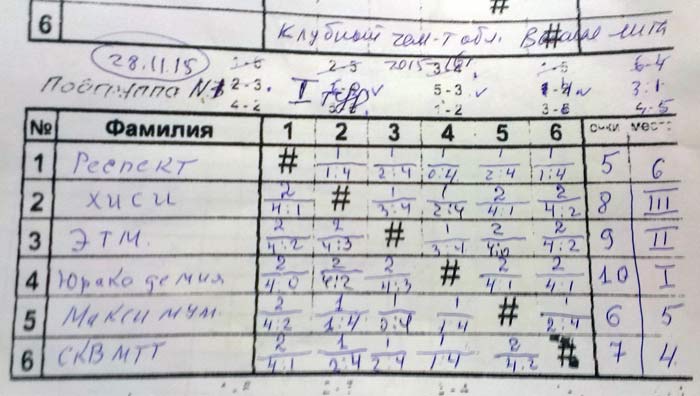 6 Клубный чем-т обл. лига
28.11.15 1-6 2-5 2015 3-4 1-5 6-4
Подгруппа №1 2-3 5-3 3:1
4-2 I тур. 1-2 4-5
№ Фамилия 1 2 3 4 5 6 очки место
1 Респект # 1/1:4 1/2:4 1/0:4 1/2:4 1/1:4 5 6
2 ХИСИ 2/4:1 # 1/3:4 1/2:4 2/4:1 2/4:2 8 III
3 ЭТМ. 2/4:2 2/4:3 # 1/3:4 2/4:0 2/4:2 9 II
4 Юракадемия 2/4:0 2/4:2 2/4:3 # 2/4:1 2/4:1 10 I
5 Максимум. 2/4:2 1/1:4 1/0:4 1/1:4 # 1/2:4 6 5
6 СКВ МТТ 2/4:1 1/2:4 1/2:4 1/1:4 2/4:2 # 7 4.